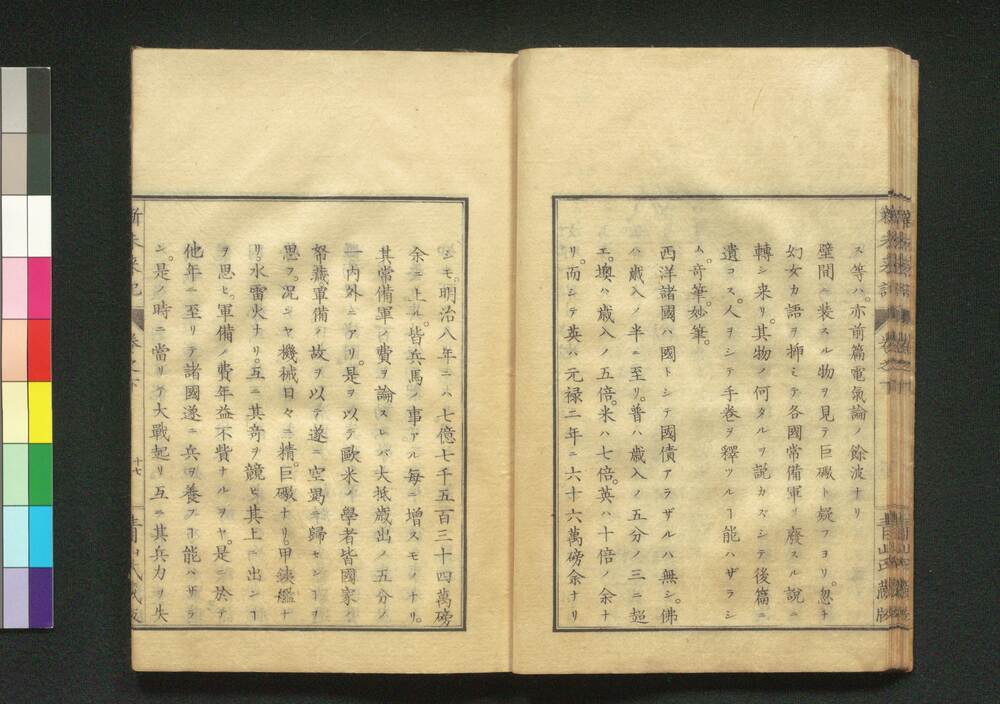 ス等ハ。亦前篇電氣論ノ餘波ナリ
壁間ニ装スル物ヲ見テ巨礮ト疑フヨリ。忽チ
幻女カ語ヲ挿ミテ各國常備軍ヲ廢スル説ニ
轉シ来リ。其物ノ何タルヲ説カズシテ後篇ニ
遺コス。人ヲシテ手卷ヲ釋ツルヿ能ハザラシ
ム。奇筆。妙筆。
西洋諸國ハ國トシテ國債アラザルハ無シ。佛
ハ歳入ノ半ニ至リ。普ハ歳入ノ五分ノ三ニ超
エ。墺ハ歳入ノ五倍。米ハ七倍。英ハ十倍ノ余ナ
リ。而シテ英ハ元禄二年ニ六十六萬磅余ナリ
シモ。明治八年ニハ七億七千五百三十四萬磅
余ニ上ル。皆兵馬ノ事アル毎ニ増スモノナリ。
其常備軍ノ費ヲ論スレバ大抵歳出ノ五分ノ
一内外ニアリ。是ヲ以テ歐米ノ學者皆國家ノ
帑藏軍備ノ故ヲ以テ遂ニ空竭ニ歸センヿヲ
思フ。況ンヤ機械日々ニ精。巨礮ナリ。甲鉄艦ナ
リ。水雷火ナリ。互ニ其奇ヲ競ヒ其上ニ出ンヿ
ヲ思ヒ。軍備ノ費年益不貲ナルヲヤ。是ニ於テ
他年ニ至リテ諸國遂ニ兵ヲ養フヿ能ハザラ
ン。是ノ時ニ當リテ大戰起リ互ニ其兵力ヲ失
新未来記
卷之下
十七
青山氏藏版